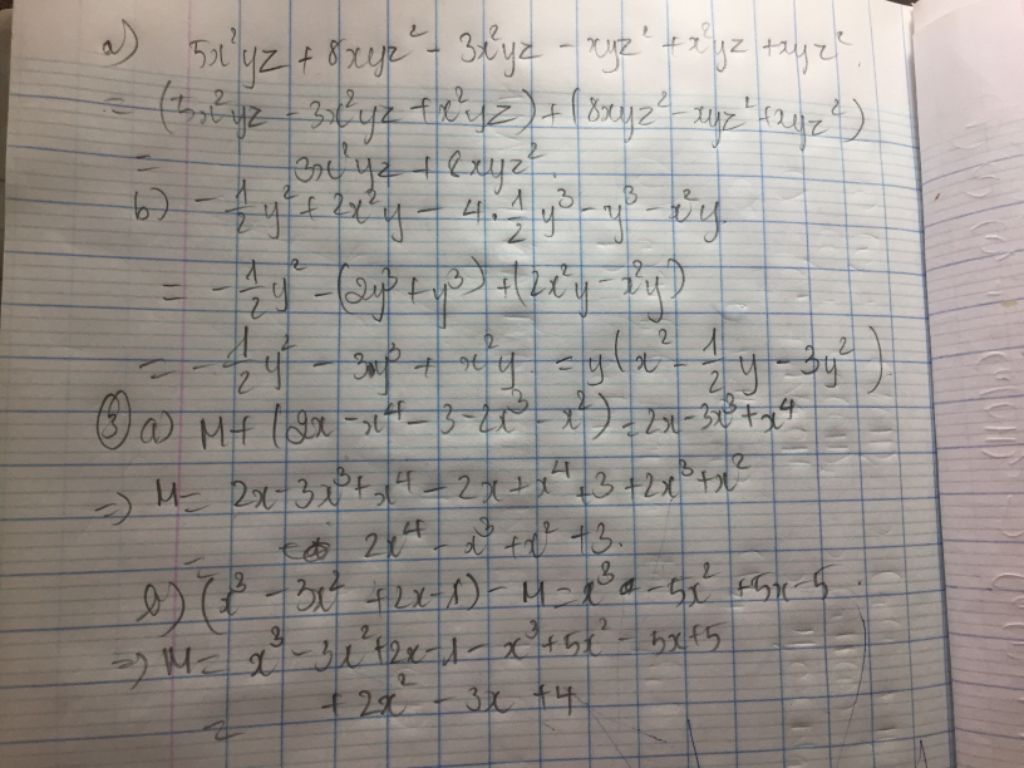 a) 5x²yz + 8xyz² - 3x²yz - xyz² + x²yz + xyz².
= (5x²yz - 3x²yz + x²yz) + (8xyz² - xyz² + xyz²)
= 3x²yz + 8xyz².
b) -1/2y² + 2x²y - 4.1/2y³ - y³ - x²y.
= -1/2y² - (2y³ + y³) + (2x²y - x²y)
= -1/2y² - 3y³ + x²y = y(x² - 1/2y - 3y²).
③ a) M + (2x - x⁴ - 3 - 2x³ - x²) = 2x - 3x³ + x⁴
=> M = 2x - 3x³ + x⁴ - 2x + x⁴ + 3 + 2x³ + x²
= 2x⁴ - x³ + x² + 3.
b) (x³ - 3x² + 2x - 1) - M = x³ - 5x² + 5x - 5.
=> M = x³ - 3x² + 2x - 1 - x³ + 5x² - 5x + 5
= + 2x² - 3x + 4